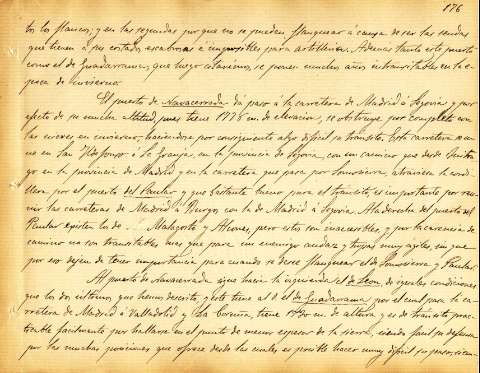 176
tos los flancos; y en las segundas por que no se pueden flanquear á causa de ser las sendas
que tienen á sus costados escabrosas é imposibles para artilleria. Ademas tanto este puerto
como el de Guadarrama, que luego citaremos, se ponen muchos años intransitables en la é-
poca de invierno.
El puerto de Navacerrada dá paso á la carretera de Madrid á Segovia y por
efecto de su mucha altitud pues tiene 1778 m. de elevacion, se obstruye por completo con
las nieves en invierno, haciendose por consiguiente algo dificil su tránsito. Esta carretera se u-
ne en San Ildefonso ó la Granja, en la provincia de Segovia, con un camino que desde Buitra-
go en la provincia de Madrid y en la carretera que pasa por Somosierra, atraviesa la cordi-
llera por el puerto del Paular y que bastante bueno para el tránsito es importante por reu-
nir las carreteras de Madrid á Burgos con la de Madrid á Segovia. A la derecha del puerto del
Paular existen los de Malagosto y Arcones, pero estos son inaccesibles y por la carencia de
camino no son transitables mas que para un enemigo audaz y tropas muy agiles, sin que
por eso dejen de tener importancia para cuando se desee flanquear el de Somosierra y Paular.
Al puerto de Navacerrada sigue hacia la izquierda el de Leon, de iguales condiciones
que los dos últimos que hemos descrito, y este tiene al O. el de Guadarrama por el cual pasa la ca-
rretera de Madrid á Valladolid y la Coruña, tiene m. de altura y es de tránsito prac-
ticable facilmente por hallarse en el punto de menor espesor de la sierra, siendo facil su defensa
por las muchas posiciones que ofrece desde las cuales es posible hacer muy dificil su posesion